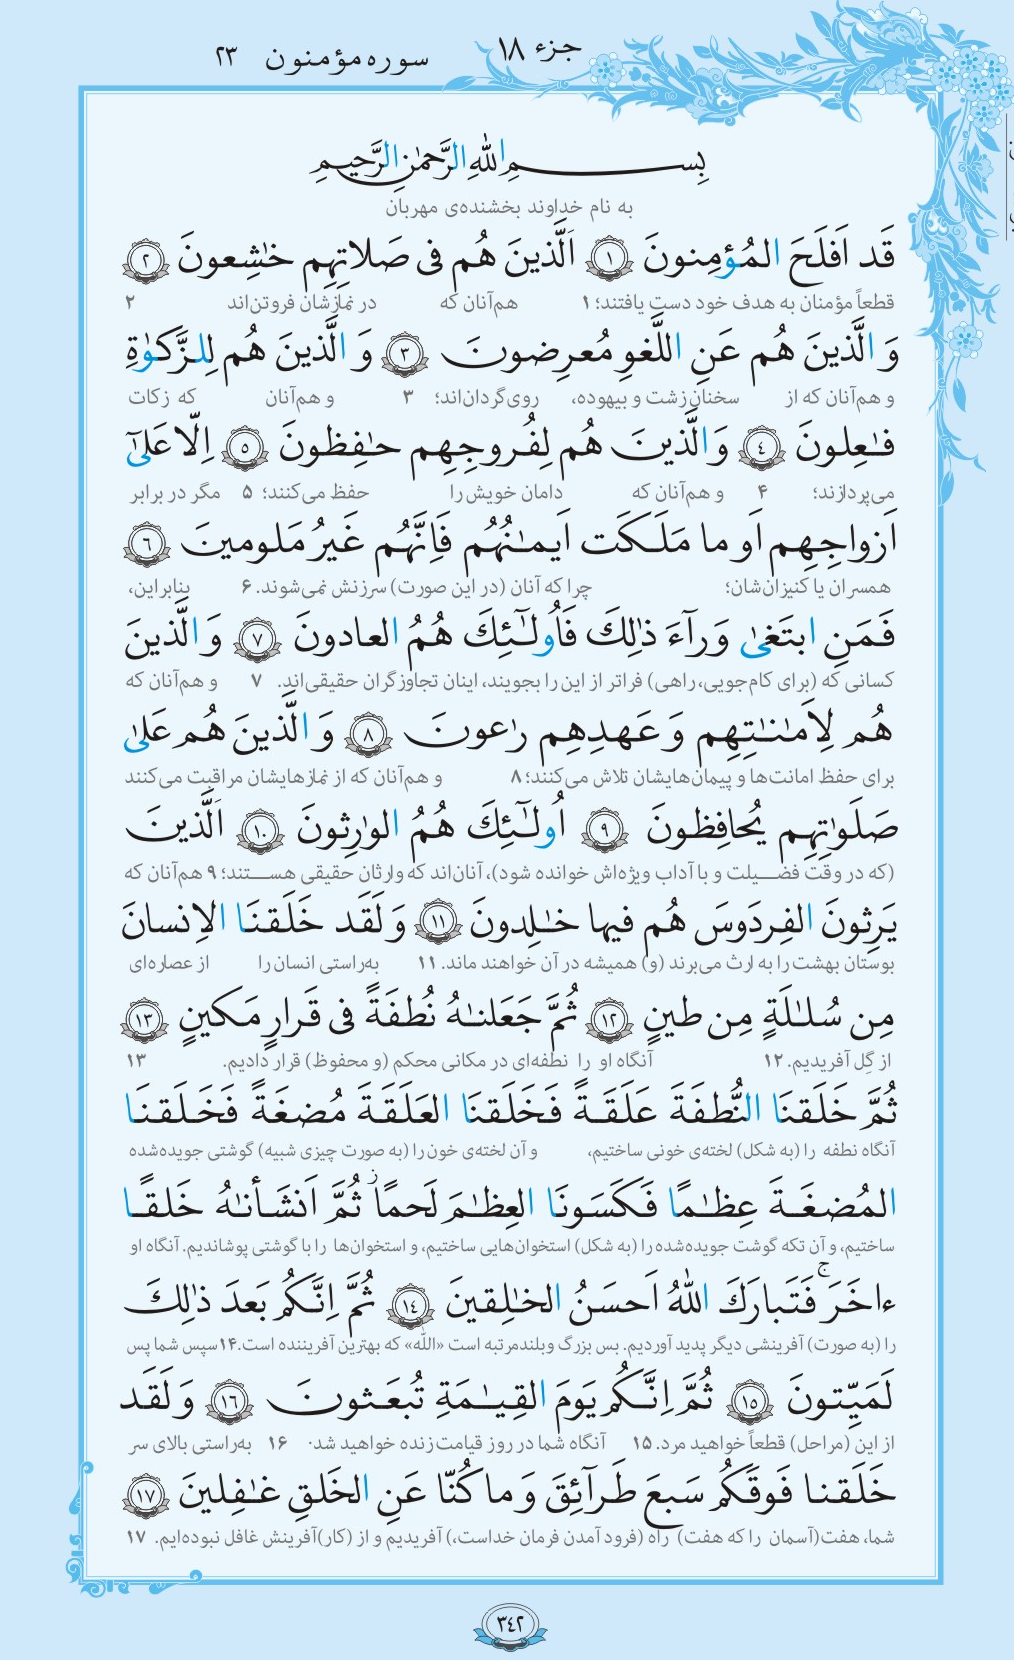 جزء ۱۸
سوره مؤمنون ۲۳
بِسمِ اللهِ الرَّحمٰنِ الرَّحیمِ
به نام خداوند بخشنده‌ی مهربان
قَد اَفلَحَ المُؤمِنونَ ﴿۱﴾ اَلَّذینَ هُم فی صَلاتِهِم خٰشِعونَ ﴿۲﴾
قطعاً مؤمنان به هدف خود دست یافتند؛ ۱ هم‌آنان که در نمازشان فروتن‌اند ۲
وَ الَّذینَ هُم عَنِ اللَّغوِ مُعرِضونَ ﴿۳﴾ وَ الَّذینَ هُم لِلزَّکوٰةِ
و هم‌آنان که از سخنان زشت و بیهوده، روی‌گردان‌اند؛ ۳ و هم‌آنان که زکات
فٰعِلونَ ﴿۴﴾ وَ الَّذینَ هُم لِفُروجِهِم حٰفِظونَ ﴿۵﴾ اِلّا عَلیٰٓ
می‌پردازند؛ ۴ و هم‌آنان که دامان خویش را حفظ می‌کنند؛ ۵ مگر در برابر
اَزواجِهِم اَو ما مَلَکَت اَیمٰنُهُم فَاِنَّهُم غَیرُ مَلومینَ ﴿۶﴾
همسران یا کنیزان‌شان؛ چرا که آنان (در این صورت) سرزنش نمی‌شوند. ۶ بنابراین،
فَمَنِ ابتَغیٰ وَرآءَ ذٰلِكَ فَاُولٰٓئِكَ هُمُ العادونَ ﴿۷﴾ وَ الَّذینَ
کسانی که (برای کام‌جویی، راهی) فراتر از این را بجویند، اینان تجاوزگران حقیقی‌اند. ۷ و هم‌آنان که
هُم لِاَمٰنٰتِهِم وَ عَهدِهِم رٰعونَ ﴿۸﴾ وَ الَّذینَ هُم عَلیٰ
برای حفظ امانت‌ها و پیمان‌هایشان تلاش می‌کنند؛ ۸ و هم‌آنان که از نمازهایشان مراقبت می‌کنند
صَلَوٰتِهِم یُحافِظونَ ﴿۹﴾ اُولٰٓئِكَ هُمُ الوٰرِثونَ ﴿۱۰﴾ اَلَّذینَ
(که در وقت فضـیلت و با آداب ویژه‌اش خوانده شود)، آنان‌اند که وارثان حقیقی هسـتند؛ ۹ هم‌آنان که
یَرِثونَ الفِردَوسَ هُم فیها خٰلِدونَ ﴿۱۱﴾ وَ لَقَد خَلَقنَا الاِنسانَ
بوستان بهشت را به ارث می‌برند (و) همیشه در آن خواهند ماند. ۱۱ به‌راستی انسان را از عصاره‌ای
مِن سُلٰلَةٍ مِن طینٍ ﴿۱۲﴾ ثُمَّ جَعَلنٰهُ نُطفَةً فی قَرارٍ مَکینٍ ﴿۱۳﴾
از گِل آفریدیم. ۱۲ آنگاه او را نطفه‌ای در مکانی محکم (و محفوظ) قرار دادیم. ۱۳
ثُمَّ خَلَقنَا النُّطفَةَ عَلَقَةً فَخَلَقنَا العَلَقَةَ مُضغَةً فَخَلَقنَا
آنگاه نطفه را (به شکل) لخته‌ی خونی ساختیم، و آن لخته‌ی خون را (به صورت چیزی شبیه) گوشتی جویده‌شده
المُضغَةَ عِظٰمًا فَکَسَونَا العِظٰمَ لَحمًا ز ثُمَّ اَنشَأنٰهُ خَلقًا
ساختیم، و آن تکه گوشت جویده‌شده را (به شکل) استخوان‌هایی ساختیم، و استخوان‌ها را با گوشتی پوشاندیم. آنگاه او
ءاخَرَ ج فَتَبارَكَ اللهُ اَحسَنُ الخٰلِقینَ ﴿۱۴﴾ ثُمَّ اِنَّکُم بَعدَ ذٰلِكَ
را (به صورت) آفرینشی دیگر پدید آوردیم. بس بزرگ و بلندمرتبه است «الله» که بهترین آفریننده است. ۱۴ سپس شما پس
لَمَیِّتونَ ﴿۱۵﴾ ثُمَّ اِنَّکُم یَومَ القِیٰمَةِ تُبعَثونَ ﴿۱۶﴾ وَ لَقَد
از این (مراحل) قطعاً خواهید مرد. ۱۵ آنگاه شما در روز قیامت زنده خواهید شد. ۱۶ به‌راستی بالای سر
خَلَقنا فَوقَکُم سَبعَ طَرآئِقَ وَ ما کُنّا عَنِ الخَلقِ غٰفِلینَ ﴿۱۷﴾
شما، هفت (آسمان را که هفت) راه (فرود آمدن فرمان خداست،) آفریدیم و از (کار) آفرینش غافل نبوده‌ایم. ۱۷
۳۴۲